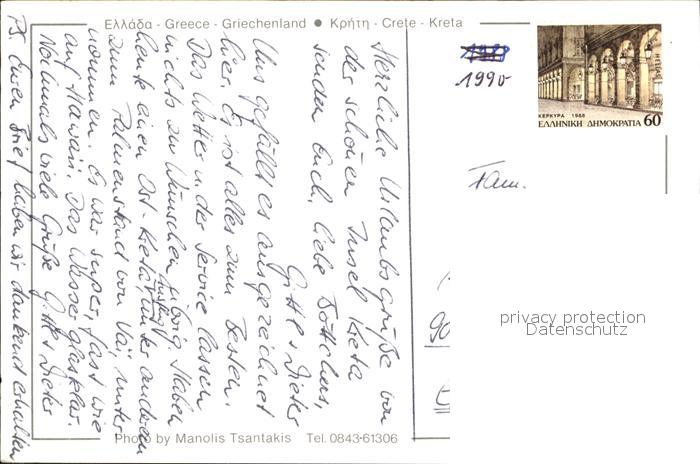 Ελλάδα - Greece - Griechenland ● Κρήτη - Crete - Kreta
1990
ΚΕΡΚΥΡΑ 1988
ΕΛΛΗΝΙΚΗ ΔΗΜΟΚΡΑΤΙΑ 60
Fam.
90
Herzliche Urlaubsgrüße von
der schönen Insel Kreta
senden Euch, liebe Böttchers,
Gittel + Dieter
Uns gefällt es ausgezeichnet
hier. Es ist alles zum Besten.
Das Wetter u. der Service lassen
nichts zu Wünschen übrig. Haben
heute einen Ost-Kreta Ausflug unter anderem
zum Palmenstrand von Vai, unter
nommen. Es war super, fast wie
auf Hawaii. Das Wasser glasklar.
Nochmals viele Grüße Gittel + Dieter
PS Euren Brief haben wir dankend erhalten
Photo by Manolis Tsantakis Tel. 0843-61306
privacy protection
Datenschutz